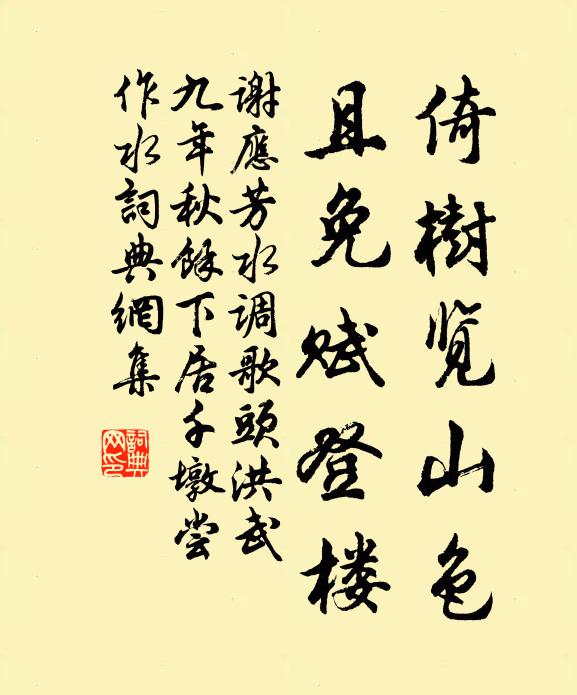 倚樹览山色
且免赋登楼
謝應芳水调歌頭洪武
九年秋餘下居千墩尝
作水詞典網集
詞典
网印